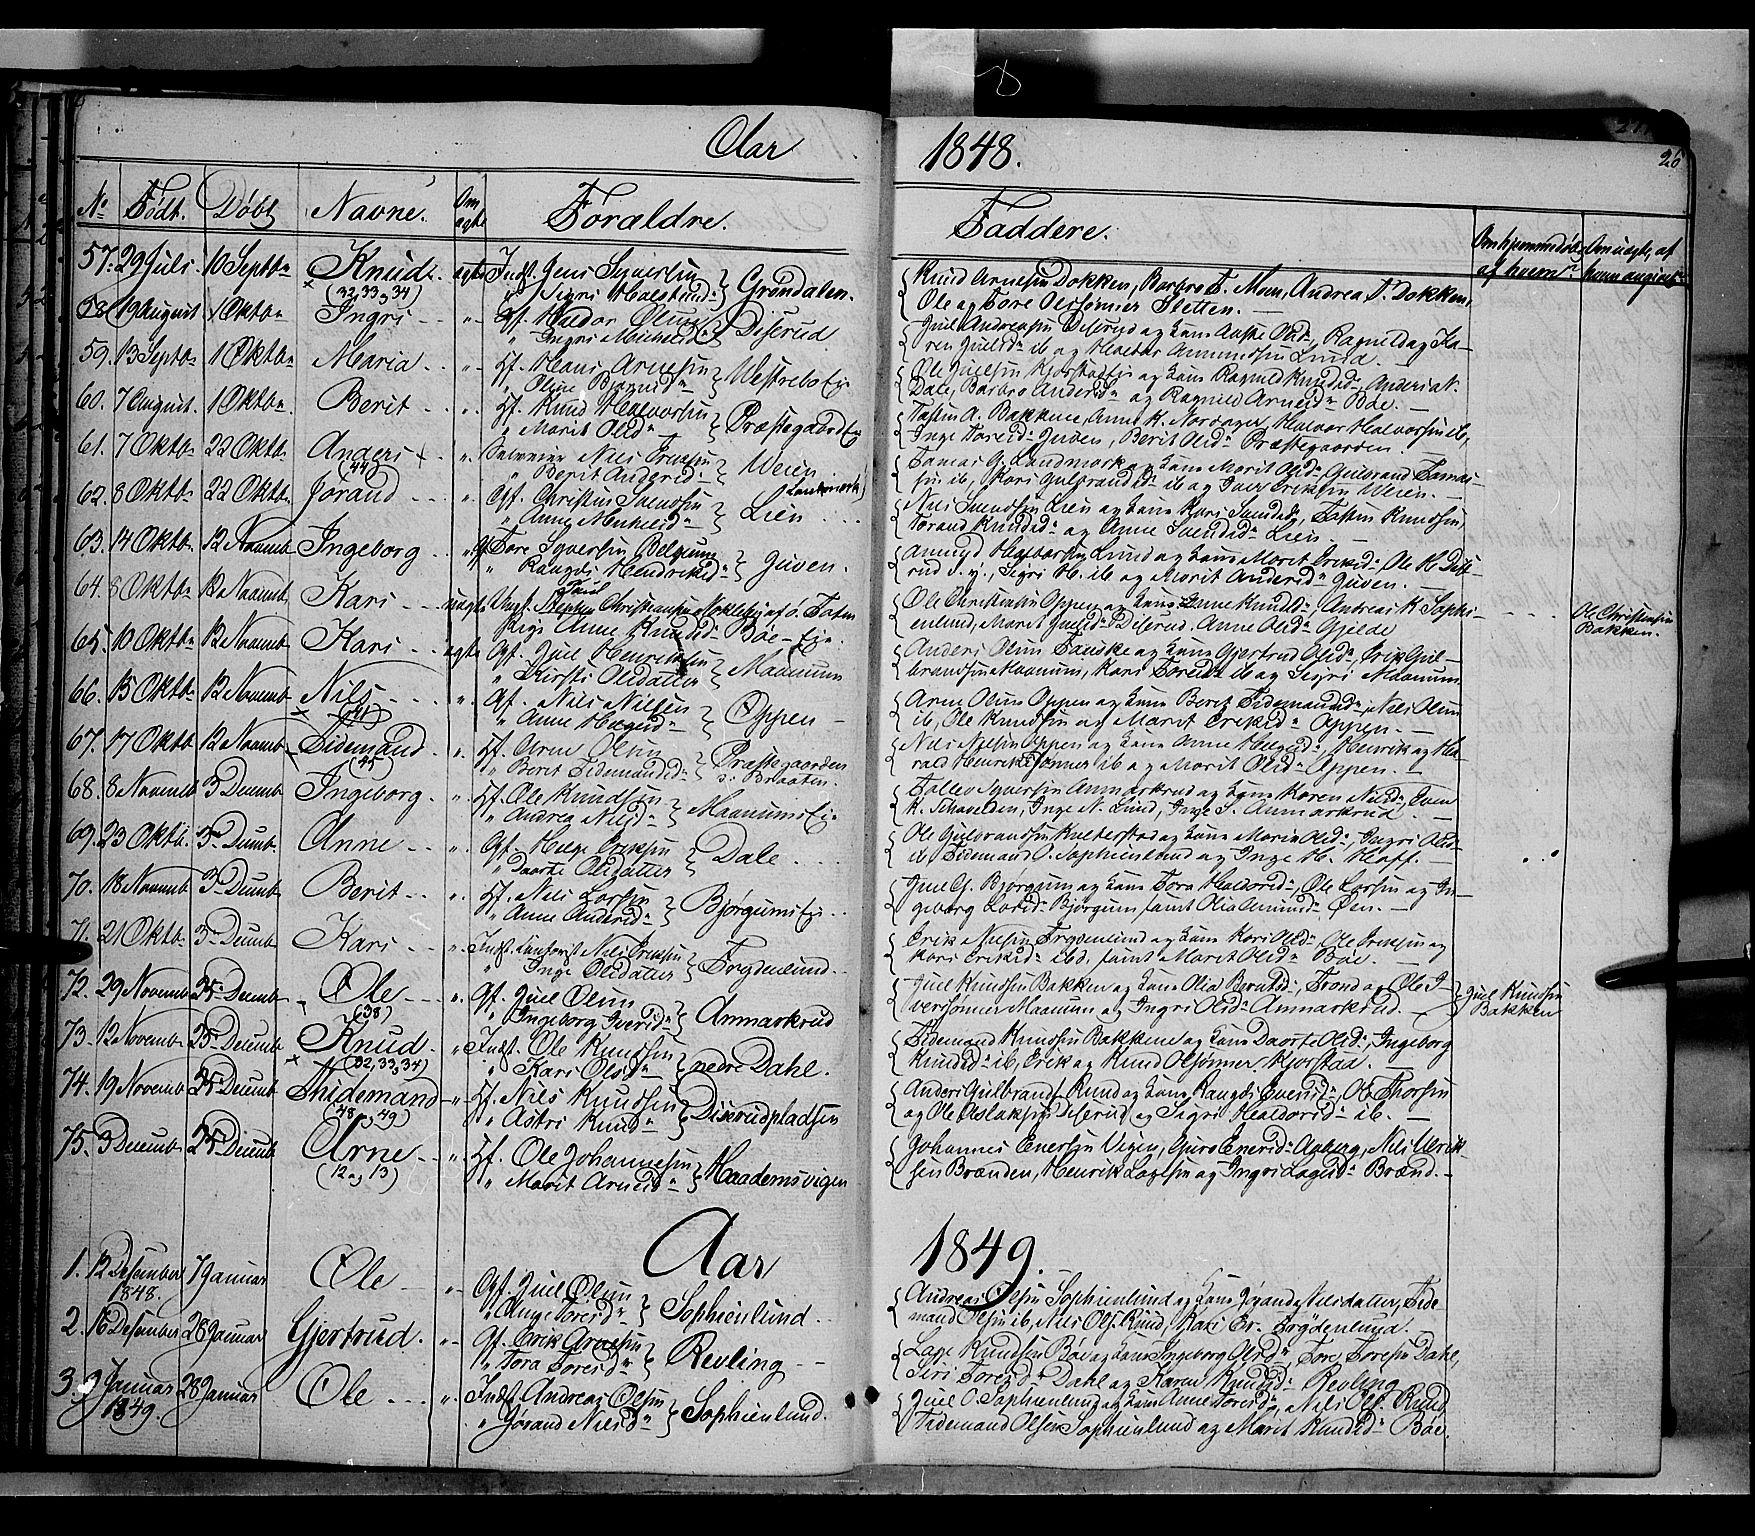 Aar 1848.
26
No Födt. Döbt Navne. Om ægte Forældre. Faddere. Om hjemmedöbt, af hvem? Om uægte, af hvem angivet?
57. 29 Juli 10 Septbr Knud ægte Indst. Jens Syversen
(32, 33, 34) " Sigri Halstensdr } Gröndalen.
Knud Arnesen Dokken, Barbro T. Moen, Andrea T. Dokken,
Ole og Tore Olssönner Sletten.
58. 19 August 1 Oktbr Ingri " Gf. Haldor Olsen
" Ingri } Diserud
Juel Andreasen Diserud og Kone Olsdr, Ragnild og Ka-
ren Juelsdr ib og Halvor Amundsen Lund.
59. 13 Septbr 1 Oktbr Maria " Hf. Hans Arnesen
" Oline } Westrebö Eie
Ole Juelsen og Kone Ragnild Knudsd., Anders N.
Dale, Barbro Andersdr og Ragnild Arnesdr Böe.
60. 7 August 1 Oktbr Berit " Hf. Knud Halvorsen
" Marit Olsdr } Præstegaard Eie
A. Bakkene, Anne K. Halvor Halvorsen ib,
Inge Toresdr Juven, Berit Olsdr Præstegaarden.
61. 7 Oktbr 22 Oktbr Anders " Nils
(44) " Berit Andersdr } Weien
Tomas G. Landmark og Kone Marit Olsdr Gulbrand Tomas-
sen ib, Kari Gulbrandsdr ib og Iver Eriksen Weien.
62. 8 Oktbr 22 Oktbr Jörand " Gf. Christen Svendsen (Landmark)
" Anne Mikkelsdr } Lien
Nils Svendsen Lien og Kone Kari Svendsd., Knudsen,
Jörand Knudsdr og Anne Svendsdr Lien.
63. 14 Oktbr 12 Novemb Ingeborg " Gf. Tore Syversen Belgum
" Rangdi Hendriksdr } Juven.
Halvorsen Lund og Kone Marit Eriksdr, Ole H. Dise-
rud d. y., Sigri H. ib og Marit Andersdr Juven.
64. 8 Oktbr 12 Novemb Kari uægte Ungk. Christiansen
Pige Anne Knudsdr Böe-Eie.
Ole Christensen Oppen og Kone Anne Knudsd., Andreas K. Sophi-
enlund, Marit Juelsdr Diserud. Anne Olsdr Gjelde
Ole Christensen
Bakken.
65. 10 Oktbr 12 Novemb Kari ægte Gf. Juel Henriksen
" Kirsti Olsdatter } Maanum
Anders Olsen og Kone Gjertrud Olsd., Erik Gul-
brandsen Maanum, Kari Toresdr ib og Sigri Maanum.
66. 15 Oktbr 12 Novemb Nils " Gf. Nils Nielsen
(41) " Anne Helgesdr } Oppen
Arne Olsen Oppen og Kone Beret Tidemandsd., Nils Olsen
ib, Ole Knudsen og Marit Eriksdr Oppen.
67. 17 Oktb 12 Novemb Tidemand " Hf. Arne Olsen
(45) " Berit Tidemandsdr } Præstegaarden
s: Braaten.
Nils Nielsen Oppen og Kone Anne Helgesdr, Henrik og Ha-
rald Henrikssönner ib og Marit Olsdr Oppen.
68. 8 Novemb 3 Decemb Ingeborg " Hf. Ole Knudsen
" Andrea Nilsdr } Maanums Eie
Syversen Anmarkrud og Kone Karen Nilsdr, Even
K. Inge N. Lund, Inge S. Anmarkrud.
69. 23 Oktb. 3 Decemb. Anne " Gf. Helge Eriksen
" Daarte Olsdatter } Dale
Ole Gulbrandsen og Kone Maria Olsdr, Ingri Olsdr
ib, Tidemand O. Sophienlund og Inge H. Hoff.
70. 18 Novemb 3 Decemb Berit " Hf. Nils Larsen
" Anne Andersdr } Björgums Eie
Juel G. Björgum og Kone Tora Haldorsdr, Ole Larsen og In-
geborg Larsdr Björgum, samt Olia Amundsdr Öen.
71. 21 Oktb. 3 Decemb Kari " Indst. Landhorst Nils Eriksen
" Inge Olsdatter } Frydenlund.
Erik Nielsen Frydenlund og Kone Kari Olsdr, Ole Eriksen og
Kari Eriksdr ibd, samt Marit Olsdr Böe.
72. 29 Novemb 25 Decemb Ole " Gf. Juel Olsen
(38) " Ingeborg Iversdr } Anmarkrud
Juel Knudsen Bakken og Kone Olia Berntsd., Trond og Ole I-
verssönner Maanum og Ingri Olsdr Anmarkrud.
Juel Knudsen
Bakken
73. 12 Novemb 25 Decemb Knud " Indst. Ole Knudsen
(32, 33, 34) " Kari Olsdr } nedre Dahl.
Tidemand Knudsen Bakkene og Kone Daarte Olsdr, Ingeborg
Knudsdr ib, Erik og Knud Olssönner Kjörstad.
74. 19 Novemb 25 Decemb Thidemand " Hf. Nils Knudsen
(48 og 49) " Astri Knudsdr } Diserudpladsen
Anders Gulbrands. Rund og Kone Rangdi Eversdr, Ole Thorsen
og Ole Aslaksen Diserud og Sigri Haldorsdr ib.
75. 3 Decemb 25 Decemb Arne " Hf. Ole Johannesen
(12 og 13) " Marit Arnesdr } Haademsvigen
Johannes Enersen Vigen, Guro Enersdr Aaberg, Nils Ulrik-
sen Brænden, Henrik Lagesen og Ingri Lagesdr Brænd.
Aar 1849.
1. 12 Desember 1848. 7 Januar Ole " Gf. Juel Olsen
" Anne Toresdr } Sophienlund.
Andreas Olsen Sophienlund og Kone Jörand Nilsdatter, Tide-
mand Olsen ib, Nils Ols. Rund, Kari Er. Frydenlund.
2. 16 Desember 28 Januar Gjertrud. " Gf. Erik Arnesen
" Tora Toresdr } Revling
Lage Knudsen Böe og Kone Ingeborg Olsdr, Tore Toresen Dahl,
Siri Toresdr Dahl og Karen Knudsdr Revling
3. 9 Januar 1849. 28 Januar Ole " Indst. Andreas Olsen
" Jörand Nilsdr } Sophienlund.
Juel O. Sophienlund og Kone Anne Toresdr, Nils Ols. Rund,
Tidemand Olsen Sophienlund og Marit Knudsdr Böe.